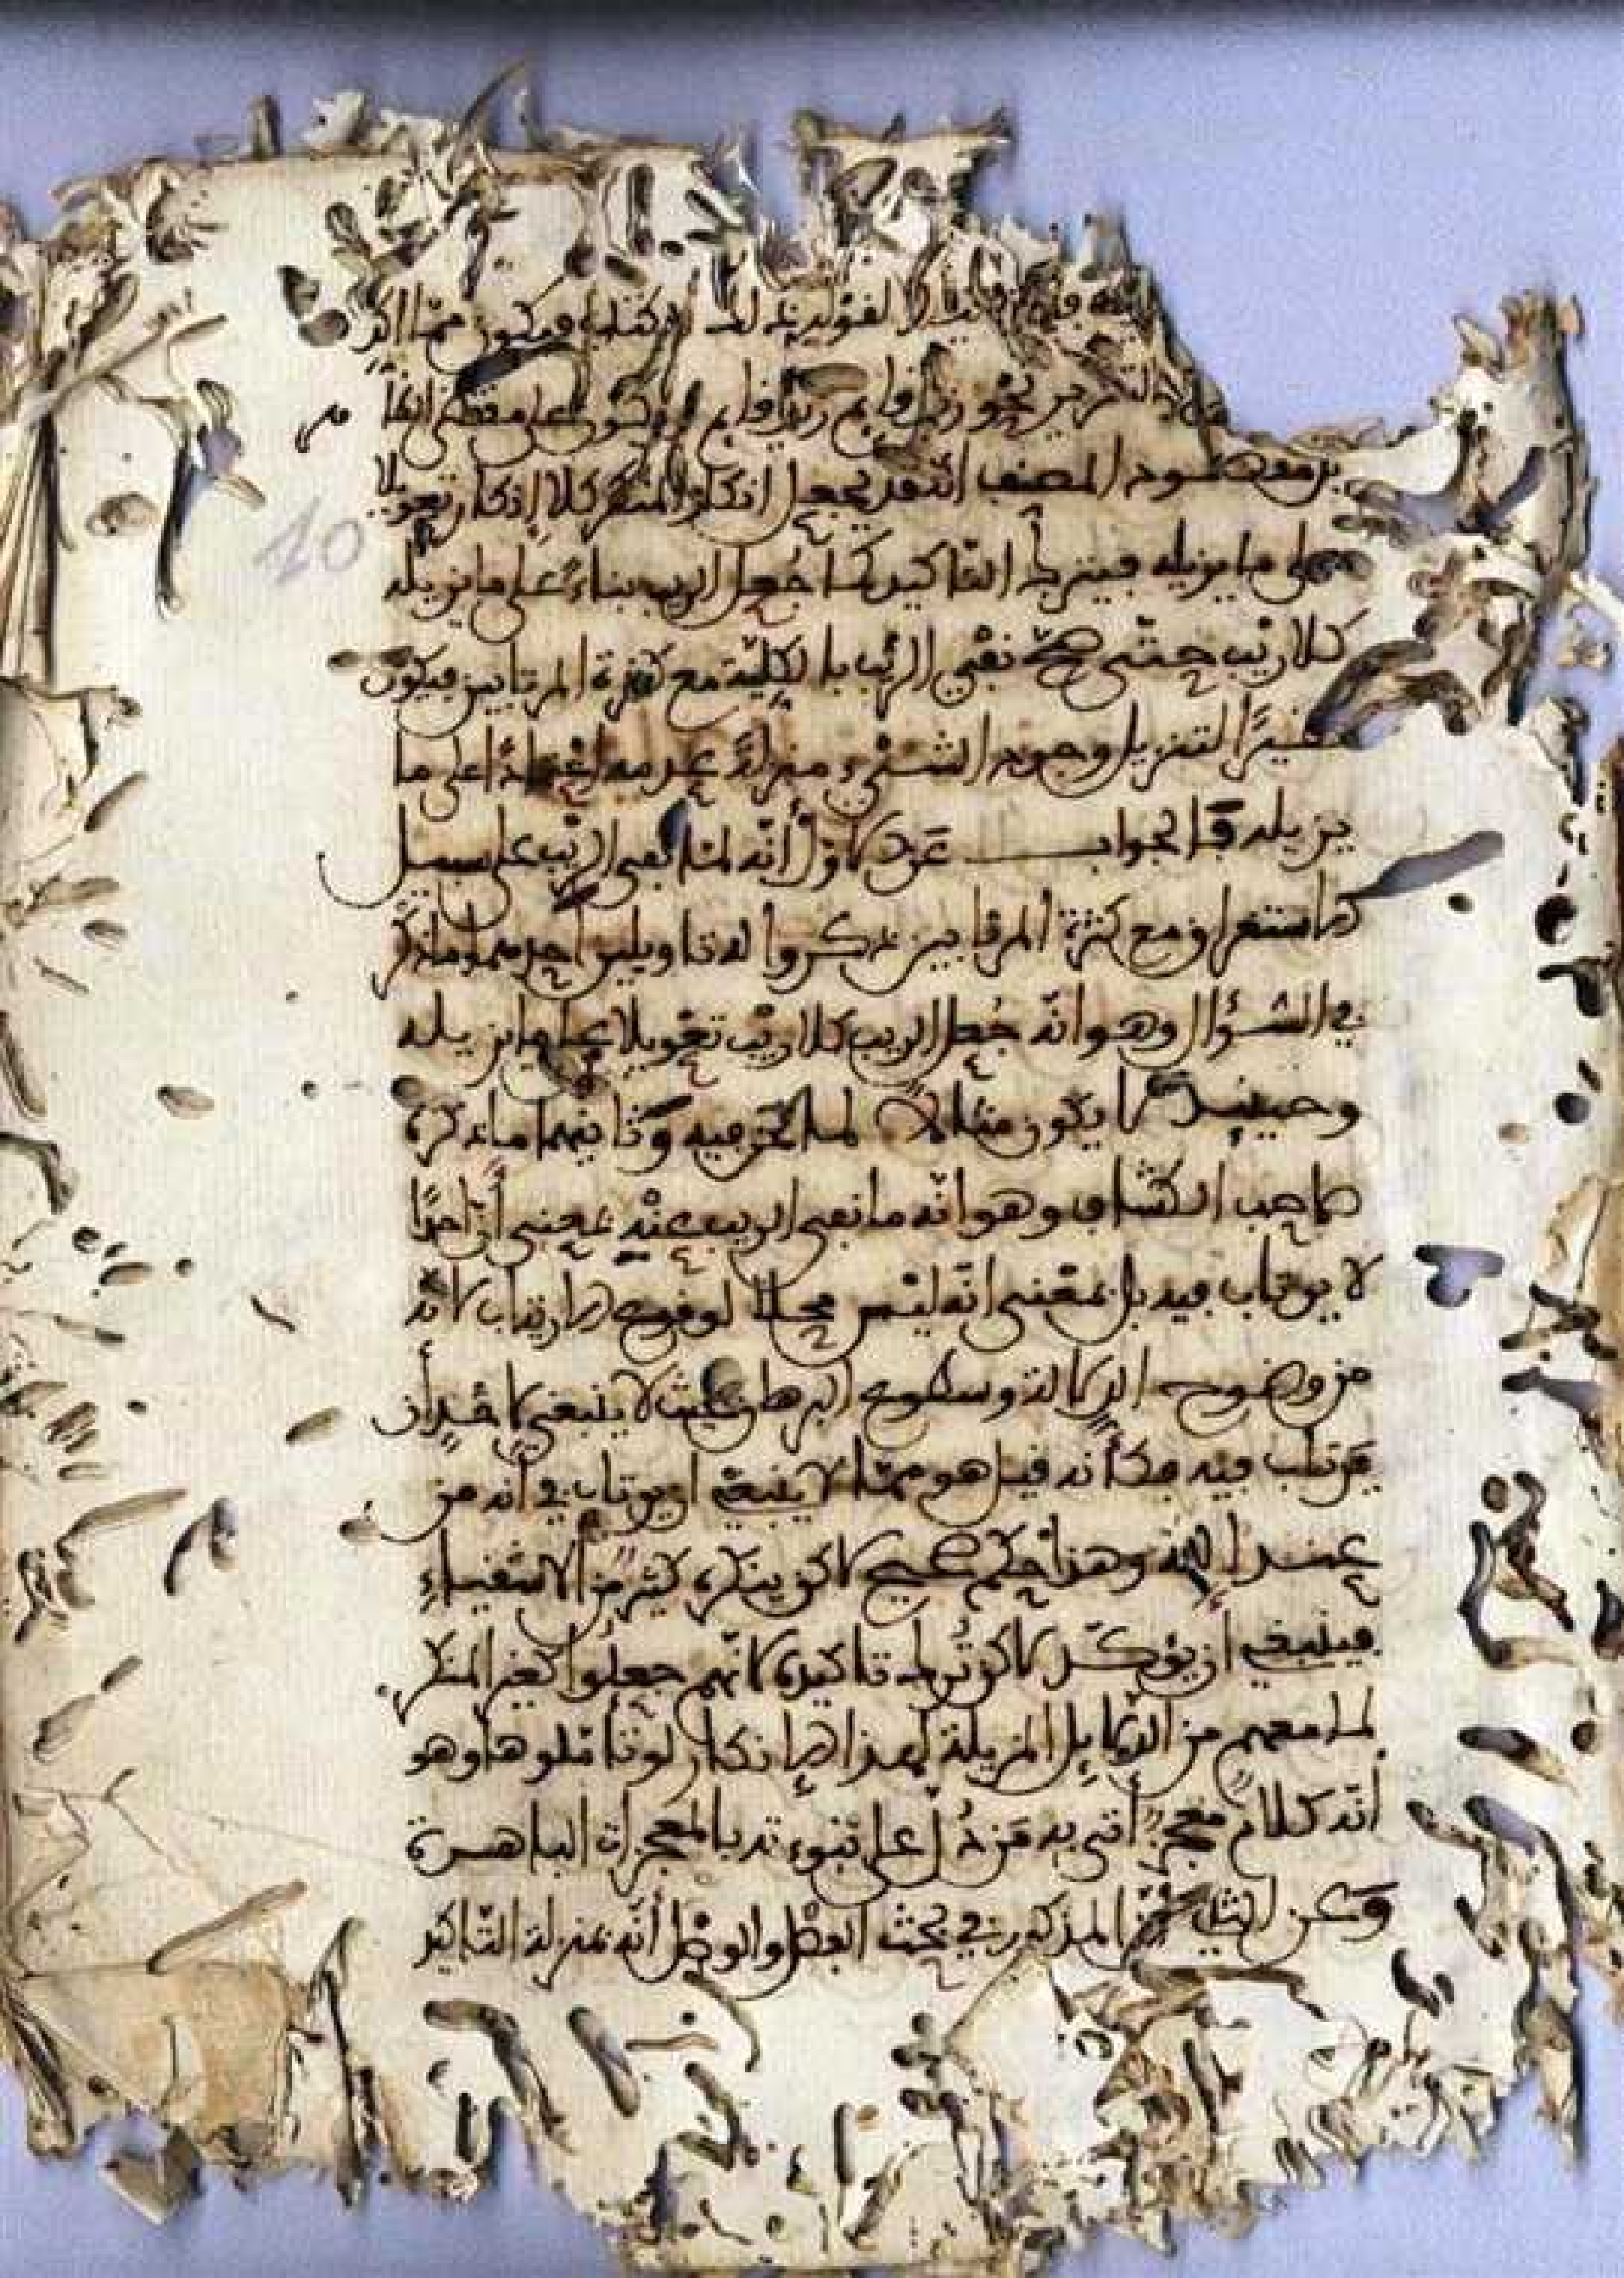 لا لقوله له فيكون مما اكد
التكرير نحو زيد قايم زيد قايم او يكون على مقتضى انما
مقصود المصنف انه قد يجعل انكار المنكر كلا إنكار تعويلا
على ما يزيله فيترك التاكيد كما جُعل الريب بناءً على ما يزيله
كلا ريب حتى صحّ نفي الريب بالكليّة مع كثرة المرتابين فيكون
نظيرًا لتنزيل وجود الشيء منزلة عدمه اعتمادًا على ما
يزيله فالجواب عن الاول أنّه لما نفى الريب على سبيل
الاستغراق مع كثرة المرتابين ذكروا له تاويلين احدهما ما ذكر
في السّؤال وهو انّه جُعل الريب كلا ريب تعويلا على ما يزيله
وحينيذ لا يكون مثالا لما نحن فيه وثانيهما ما ذكره
صاحب الكشاف وهو انّه ما نفى الريب عنه بمعنى أنّ احدًا
لا يرتاب فيه بل بمعنى انّه ليس محلا لوقوع الارتياب لانه
من وضوح الدلالة وسطوع البرهان بحيث لا ينبغي لاحد أن
يرتاب فيه فكأنه قيل هو مما لا ينبغي ان يرتاب في انه من
عند الله وهذا حكم صحيح لكن ينكره كثير من الاشقياء
فينبغي ان يؤكّد لكن تُرك تاكيده لانّهم جعلوا كغير المنكر
لما معهم من الدّلايل المزيلة لهذا الانكار لو تأملوها وهو
أنّه كلامٌ معجزٌ أتى به مَن دُلّ على نبوءته بالمعجزات الباهرة
وعن الثاني المذكور في بحث الفصل والوصل أنّه بمنزلة التّاكيد
10